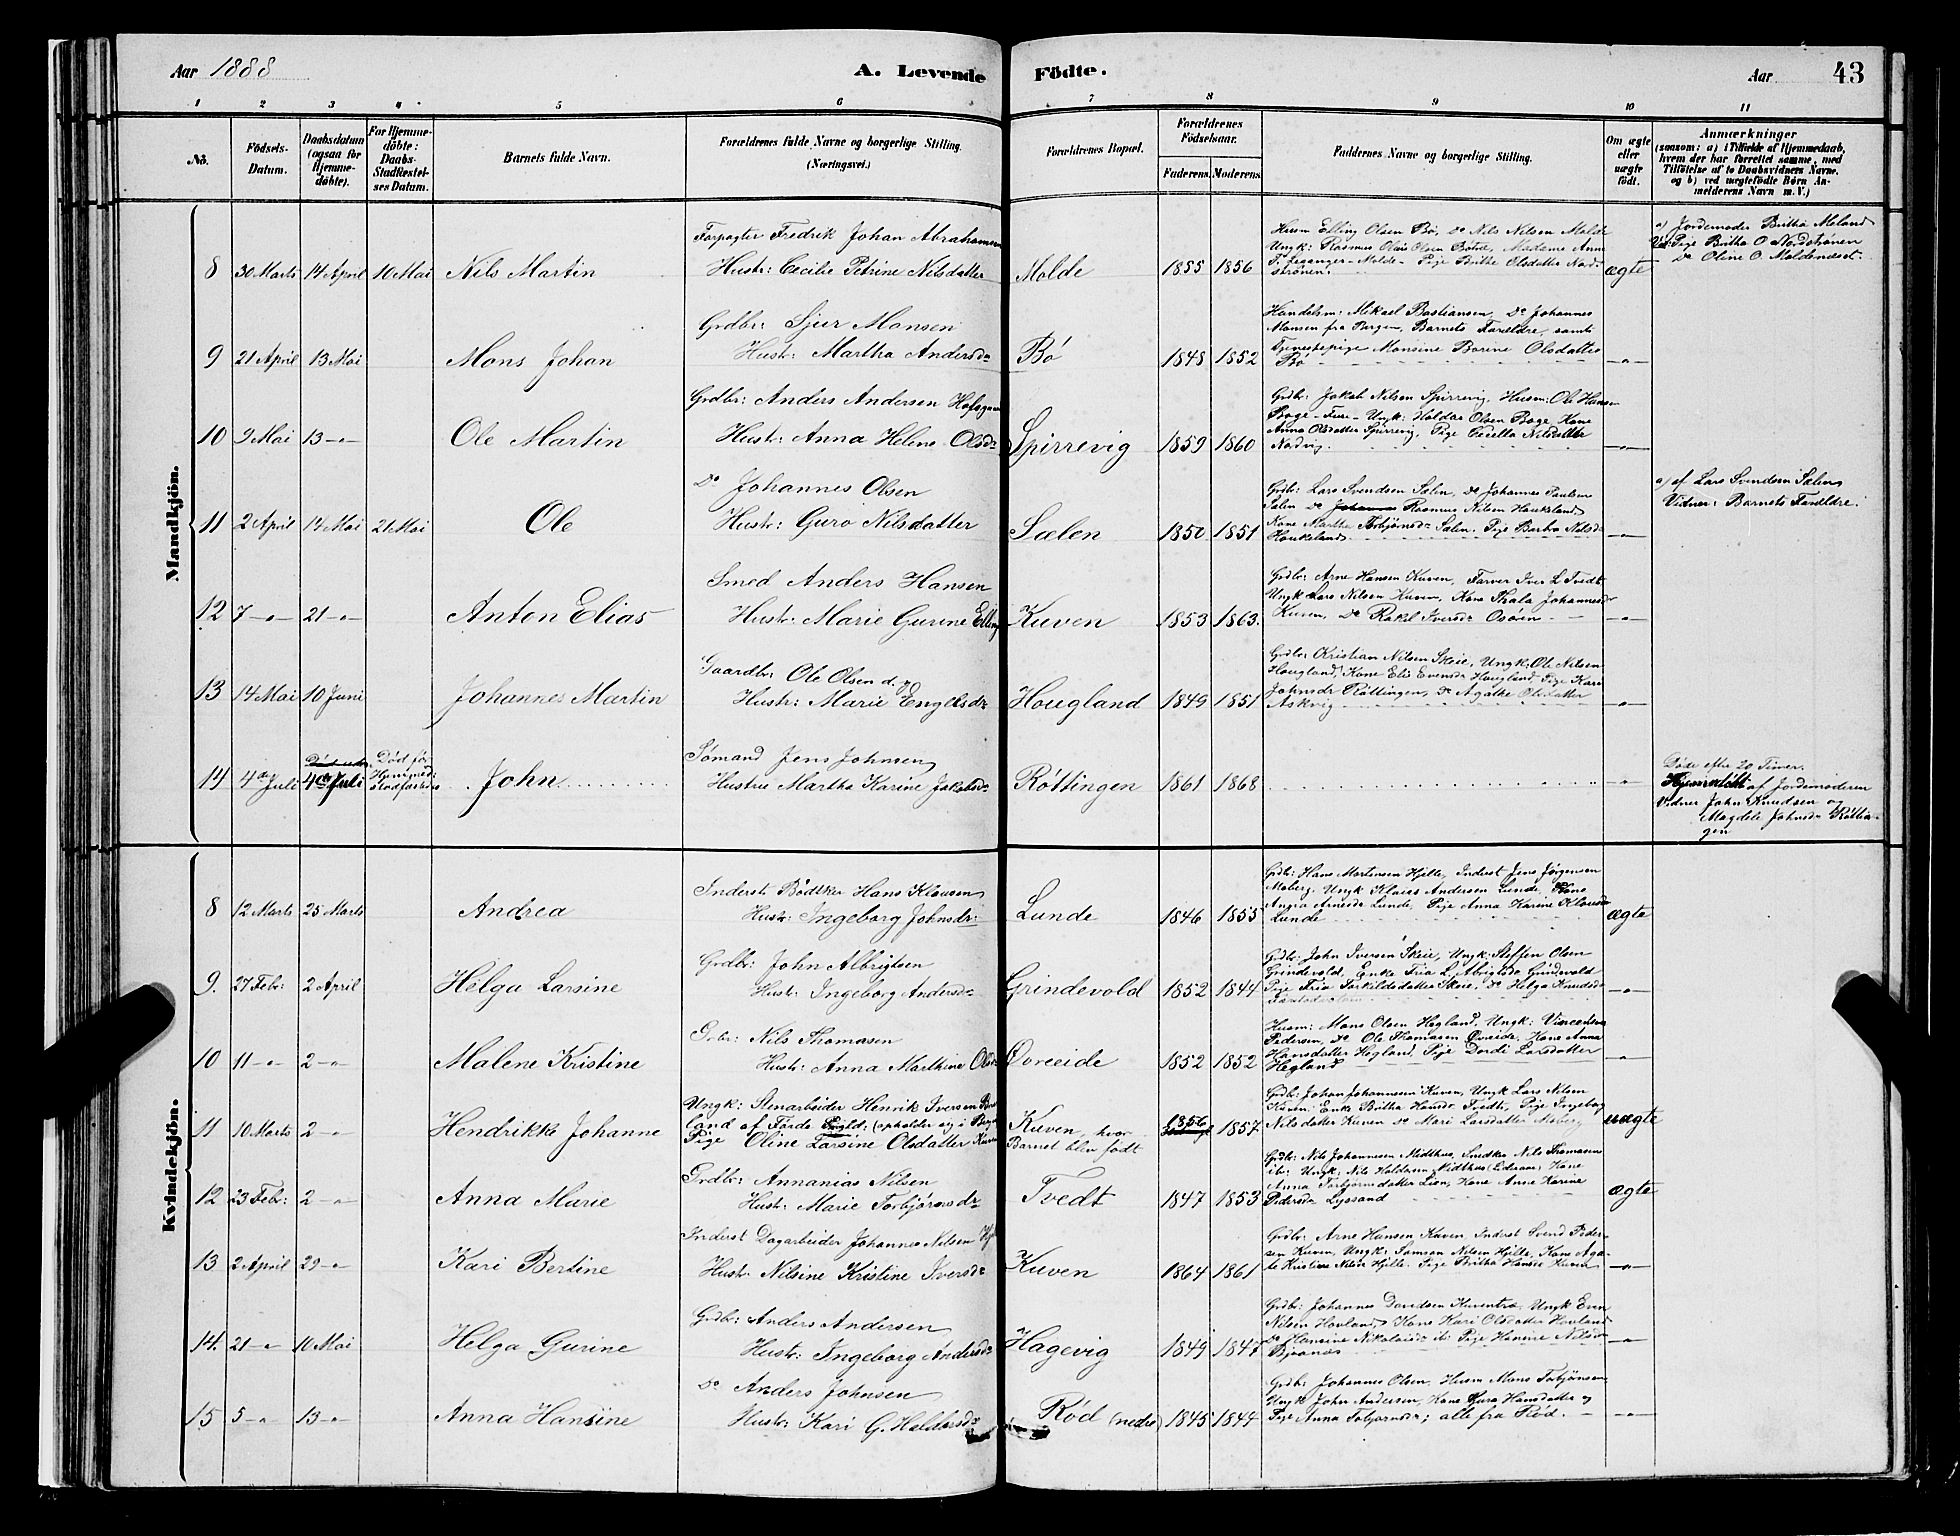 Aar 1888
A. Levende Födte.
Aar 43
1 2 3 4 5 6 7 8 9 10 11
No.
Födsels-Datum.
Daabsdatum (ogsaa for Hjemme-døbte).
For Hjemme-döbte: Daabs-Stadfæstel-ses Datum.
Barnets fulde Navn.
Forældrenes fulde Navne og borgerlige Stilling. (Næringsvei.)
Forældrenes Bopæl.
Forældrenes Födselsaar.
Faderens. Moderens.
Faddernes Navne og borgerlige Stilling.
Om ægte eller uægte födt.
Anmærkninger
(saasom: a) i Tilfælde af Hjemmedaab,
hvem der har forrettet samme, med
Tilföielse af to Daabsvidners Navne,
og b) ved uægtefödte Børn An-
melderens Navn m. V.)
Mandkjön.
8 30 Marts 14 April 10 Mai Nils Martin
Forpagter Fredrik Johan Abrahamsen
Hustr: Cecilie Petrine Nilsdatter
Molde 1855 1856
Husm Elling Olsen Bø, Do Nils Nilsen Molde
Ungk: Rasmus Olsen Madame Anne
Molde- Pige Brithe Olsdatter Nord-
strønen.
ægte
a) Jordemoder Britha Meland
Pige Britha O Nordstrønen
Do Oline O. Moldenæset.
9 21 April 13 Mai Mons Johan
Grdbr: Sjur Monsen
Hustr: Martha Andersdr
Bø 1848 1852
Handelsm: Mikael Bastiansen, Do Johannes
Monsen fra Bergen, Barnets Forældre, samt
Tjenestepige Monsine Borine Olsdatter
Bø
-"-
10 9 Mai 13 -"- Ole Martin
Grdbr: Anders Andersen
Hustr: Anna Helene Olsdr
Spirrevig 1859 1860
Grdbr: Jakob Nilsen Spirrevig, Husm: Ole Hansen
Ungk: Haldor Olsen Boge Kone
Anna Olsdatter Spirrevig, Pige Nilsdatter
Nordvig.
-"-
11 2 April 14 Mai 21 Mai Ole
Do Johannes Olsen
Hustr: Guro Nilsdatter
Sælen 1850 1851
Grdbr: Lars Svendsen Sælen, Do Johannes Paulsen
Sælen Do Rasmus Nilsen Haukeland
Kone Martha Torbjørnsdr Sælen, Pige Barbro Nilsdr
Haukeland
-"-
a) af Lars Svendsen Sælen
Vidner: Barnets Forældre.
12 7 -"- 21 -"- Anton Elias
Smed Anders Hansen
Hustr: Marie Gurine
Kuven 1853 1863.
Grdbr: Arne Hansen Kuven, Farver Iver L Tvedt
Ungk Lars Nilsen Kuven, Kone Thala Johannesdr
Kuven, Do Rakel Iversdr Osøren
-"-
13 14 Mai 10 Juni Johannes Martin
Gaardbr: Ole Olsen d. y.
Hustr: Marie Engelsdr
Hougland 1849 1851
Grdbr: Kristian Nilsen Skeie, Ungk: Ole Nilsen
Hougland, Kone Elis Evensdr Hougland, Pige Kari
Johnsdr Røttingen, Do Agathe Olsdatter
Askvig
-"-
14 4de Juli 4de Juli Død før Hjemmed: stadfæstedes John
Sømand Jens Johnsen
Hustru Martha Karine Jakobsdr
Røttingen 1861 1868
-"-
Døde efter 20 Timer.
Hjemmedøbt af Jordemoderen
Vidner John Knudsen og
Magdele Johnsdr Røttin-
gen
Kvindekjön.
8 12 Marts 25 Marts Andrea
Inderst Bødtker Hans Klausen
Hustr: Ingeborg Johnsdr
Lunde 1846 1855
Grdbr: Hans Mortensen Hjelle, Inderst Jens Jørgensen
Moberg, Ungk Klaus Andersen Lunde, Kone
Arnesdr Lunde, Pige Anna Karine Klausdr
Lunde
ægte
9. 27 Febr: 2 April Helga Larsine
Grdbr: John Albrigtsen
Hustr: Ingeborg Andersdr
Grindevold 1852 1844
Grdbr: John Iversen Skeie, Ungk: Steffen Olsen
Grindevold, Enke Tria L. Albrigtsdr Grindevold
Pige Tria Torkildsdatter Skeie, Do Helga Knudsdr
-"-
10 11 -"- 2 -"- Malene Kristine
Nils Thomasen
Hustr: Anna Marthine Olsdr
Øvreeide 1852 1852
Husm: Mons Olsen Hegland, Ungk: Vincentsen
Pedersen, Do Ole Thomasen Øvreide, Kone Anna
Hansdatter Hegland, Pige Dordi Larsdatter
Hegland
-"-
11 10 Marts 2 -"- Hendrikke Johanne
Ungk: Stenarbeider Henrik Iversen
land af Førde (opholder sig i Bergen)
Pige Oline Larsine Olsdatter Kuven
Kuven, hvor
Barnet blev født
1856 1857
Grdbr: Johan Johannesen Kuven, Ungk Lars Nilsen
Kuven Enke Britha Hansdr Tvedt, Pige Ingeborg
Nilsdatter Kuven Do Mari Larsdatter Moberg
uægte
12 23 Febr: 2 -"- Anna Marie
Grdbr: Annanias Nilsen
Hustr: Marie Torbjørnsdr
Tvedt 1847 1853
Grdbr: Nils Johannesen Midthus, Snedker Nils Thomasen
ib: Ungk: Nils Haldorsen Midthus Kone
Anna Torbjørnsdatter Lien, Kone Anne Karine
Pedersdr Lyssand
ægte
13 2 April 29 -"- Kari Bertine
Inderst Dagarbeider Johannes Nilsen
Hustr: Nilsine Kristine Iversdr
Kuven 1864 1861
Grdbr: Arne Hansen Kuven, Inderst Svend Peder-
sen Kuven, Ungk: Samson Nilsen Hjelle, Kone Aga-
te Kristine Nilsdr Hjelle. Pige Britha Hansdr Kuven
-"-
14. 21 -"- 10 Mai Helga Gurine
Grdbr: Anders Andersen
Hustr: Ingeborg Andersdr
Hagevig 1849 1847
Grdbr: Johannes Davidsen Kuventræ, Ungk Even
Nilsen Hovland, Kone Kari Olsdatter Hovland
Do Hansine Nikolaisdr ib: Pige Hansine Nilsdr
Bjønnes
-"-
15 5 -"- 13 -"- Anna Hansine
Do Anders Johnsen
Hustr: Kari G. Haldorsdr
Rød (nedre) 1845 1844
Grdbr: Johannes Olsen, Husm Mons Tobjønsen
Ungk John Andersen, Kone Guro Hansdatter og
Pige Anna Tobjørnsdr; alle fra Rød.
-"-